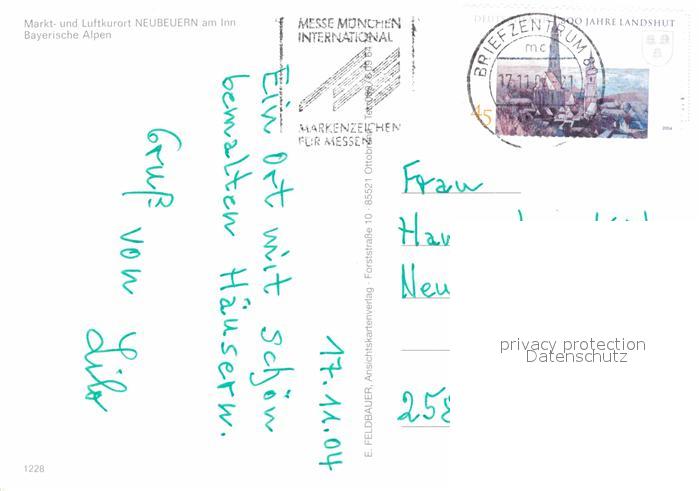 Markt- und Luftkurort NEUBEUERN am Inn
Bayerische Alpen
MESSE MÜNCHEN
INTERNATIONAL
MARKENZEICHEN
FÜR MESSEN
800 JAHRE LANDSHUT
BRIEFZENTRUM 80
mc
45
2004
17.11.04
Ein Ort mit schön
bemalten Häusern.
Gruß von
Lilo
E. FELDBAUER, Ansichtskartenverlag · Forststraße 10 · 85521 Ottobrunn
Frau
privacy protection
Datenschutz
1228